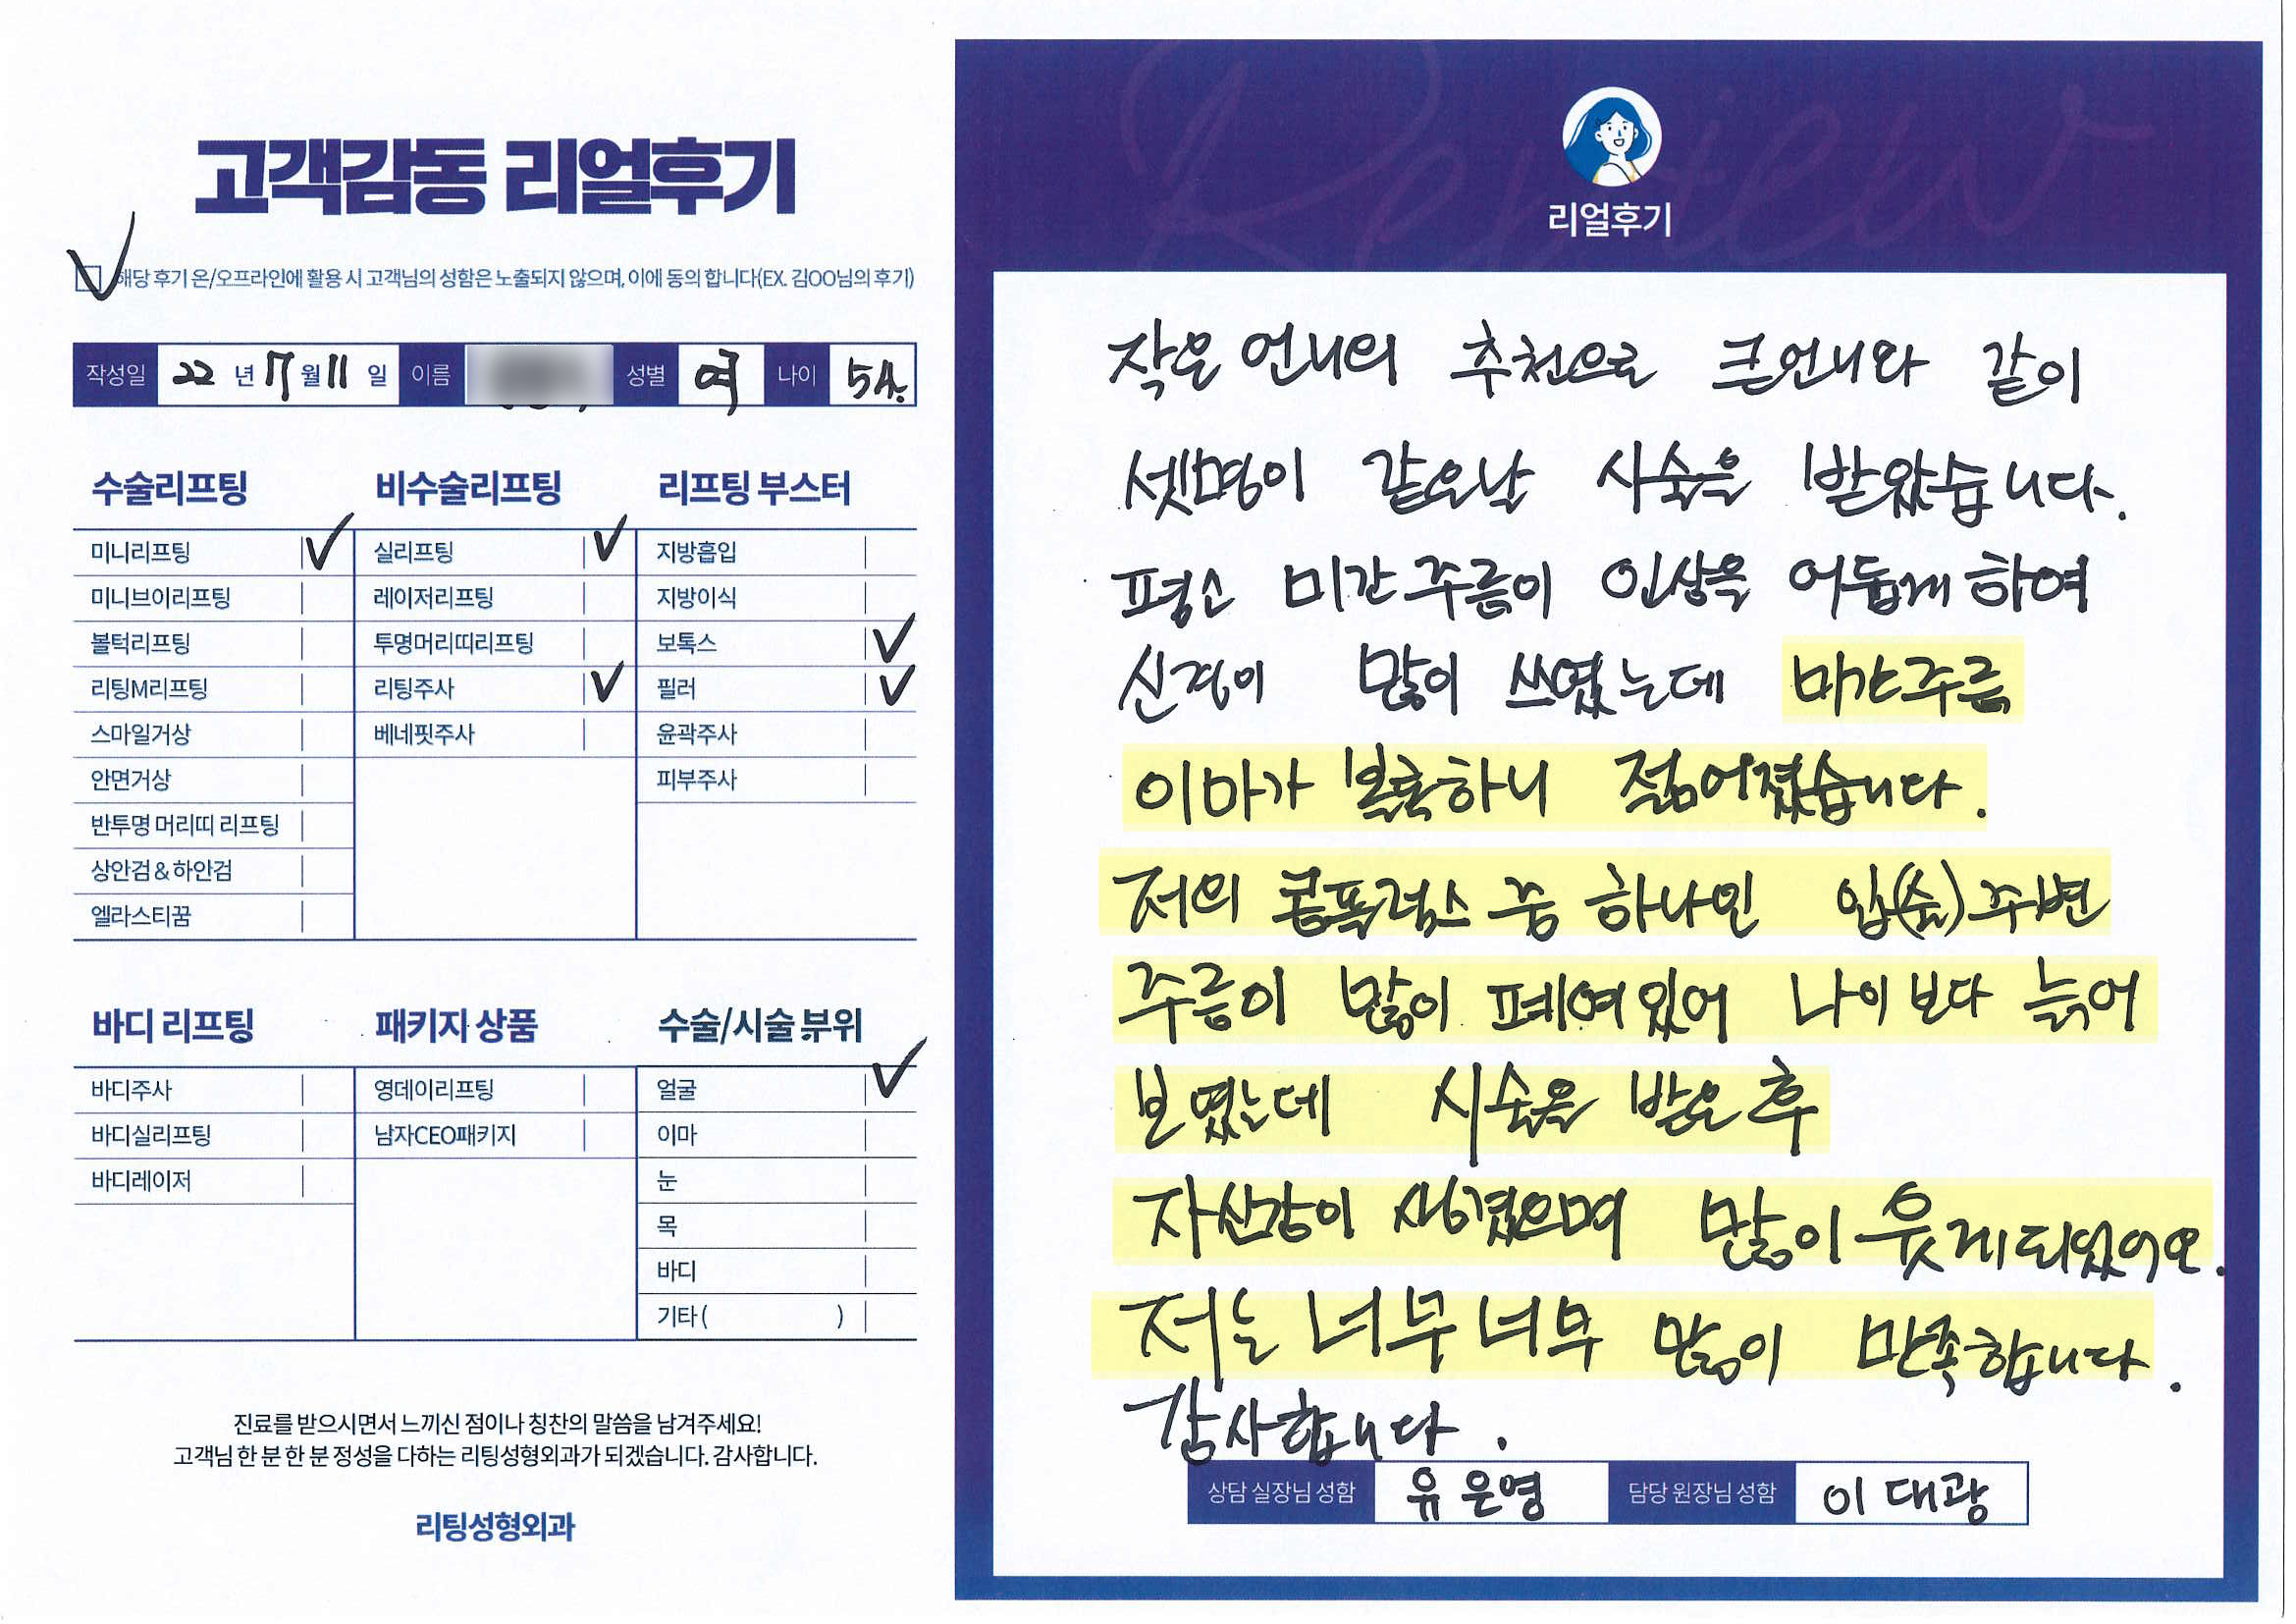 고객감동 리얼후기
해당 후기 온/오프라인에 활용 시 고객님의 성함은 노출되지 않으며, 이에 동의 합니다(EX. 김OO님의 후기)
작성일 22 년 7 월 11 일 이름 성별 여 나이 54.
수술리프팅 비수술리프팅 리프팅 부스터
미니리프팅 실리프팅 지방흡입
미니브이리프팅 레이저리프팅 지방이식
볼턱리프팅 투명머리띠리프팅 보톡스
리팅M리프팅 리팅주사 필러
스마일거상 베네핏주사 윤곽주사
안면거상 피부주사
반투명 머리띠 리프팅
상안검 & 하안검
엘라스티꿈
바디 리프팅 패키지 상품 수술/시술 부위
바디주사 영데이리프팅 얼굴
바디실리프팅 남자CEO패키지 이마
바디레이저 눈
목
바디
기타 ( )
진료를 받으시면서 느끼신 점이나 칭찬의 말씀을 남겨주세요!
고객님 한 분 한 분 정성을 다하는 리팅성형외과가 되겠습니다. 감사합니다.
리팅성형외과
Review
리얼후기
작은 언니의 추천으로 큰언니와 같이
셋명이 같은날 시술을 받았습니다.
평소 미간주름이 인상을 어둡게 하여
신경이 많이 쓰였는데 미간주름
이마가 볼록하니 젊어졌습니다.
저의 콤플렉스 중 하나인 입(술)주변
주름이 많이 폐여있어 나이보다 늙어
보였는데 시술을 받은 후
자신감이 생겼으며 많이 웃게되었어요.
저는 너무너무 많이 만족합니다.
감사합니다.
상담 실장님 성함 유은영 담당 원장님 성함 이대광